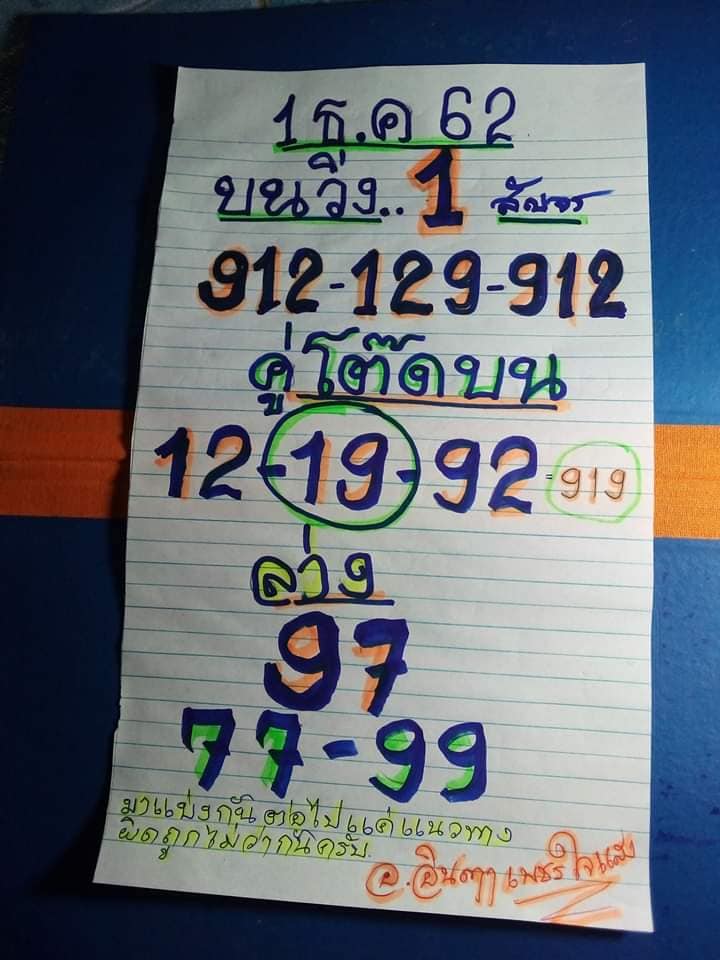 1 ธ.ค 62
บนวิ่ง.. 1 สัญจร
912-129-912
คู่โต๊ดบน
12-19-92=919
ล่าง
97
77-99
มาแบ่งกันต่อไป แค่แนวทาง
ผิดถูกไม่ว่ากันครับ.
อ.อินตา เพชรใจแสง